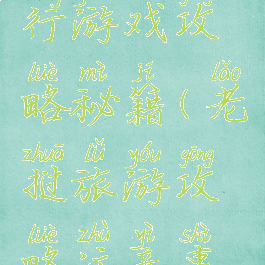 行游戏攻
lüè mì jí lǎo
略秘籍(老
zhuā lǚ yóu gōng
挝旅游攻
lüè zhù yì shì
略注意事